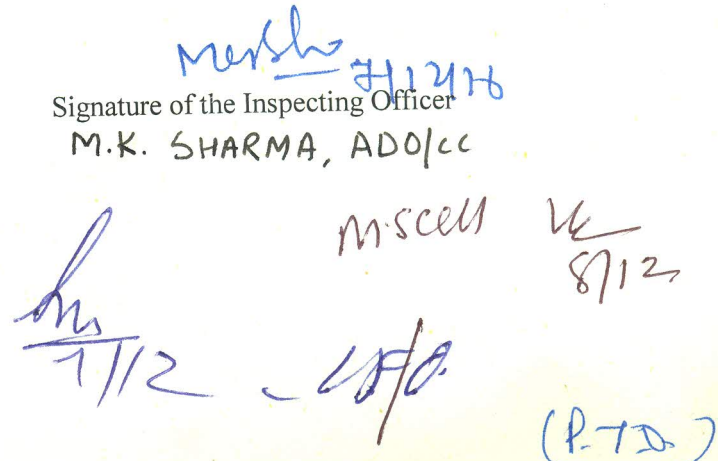 7/12/16
Signature of the Inspecting Officer
M.K. SHARMA, ADO/CC
M.S CELL
8/12
7/12
(P.T.O.)